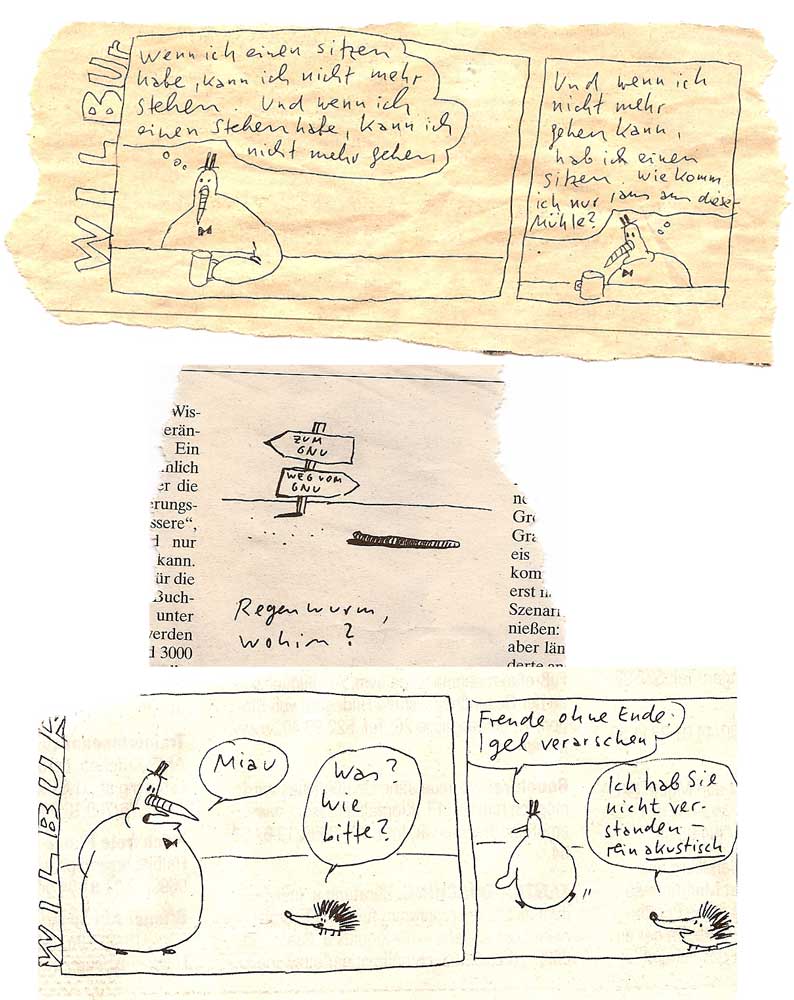 WILBUR
Wenn ich einen sitzen
habe, kann ich nicht mehr
stehen. Und wenn ich
einen Stehen habe, kann ich
nicht mehr gehen
Und wenn ich
nicht mehr
gehen kann,
hab ich einen
sitzen. wie komm
ich nur raus aus dieser
Mühle?
Wis-
erän-
Ein
nlich
er die
erungs-
ssere“,
d nur
kann.
ür die
Buch-
unter
verden
d 3000
ZUM
GNU
WEG VOM
GNU
Regenwurm,
wohin?
ne
Gr
Gra
eis
kom
erst
Szenari
nießen:
aber län
derte an
WILBUR
Miau
Was?
Wie
bitte?
Freude ohne Ende:
Igel verarschen
Ich hab Sie
nicht ver-
standen –
rein akustisch